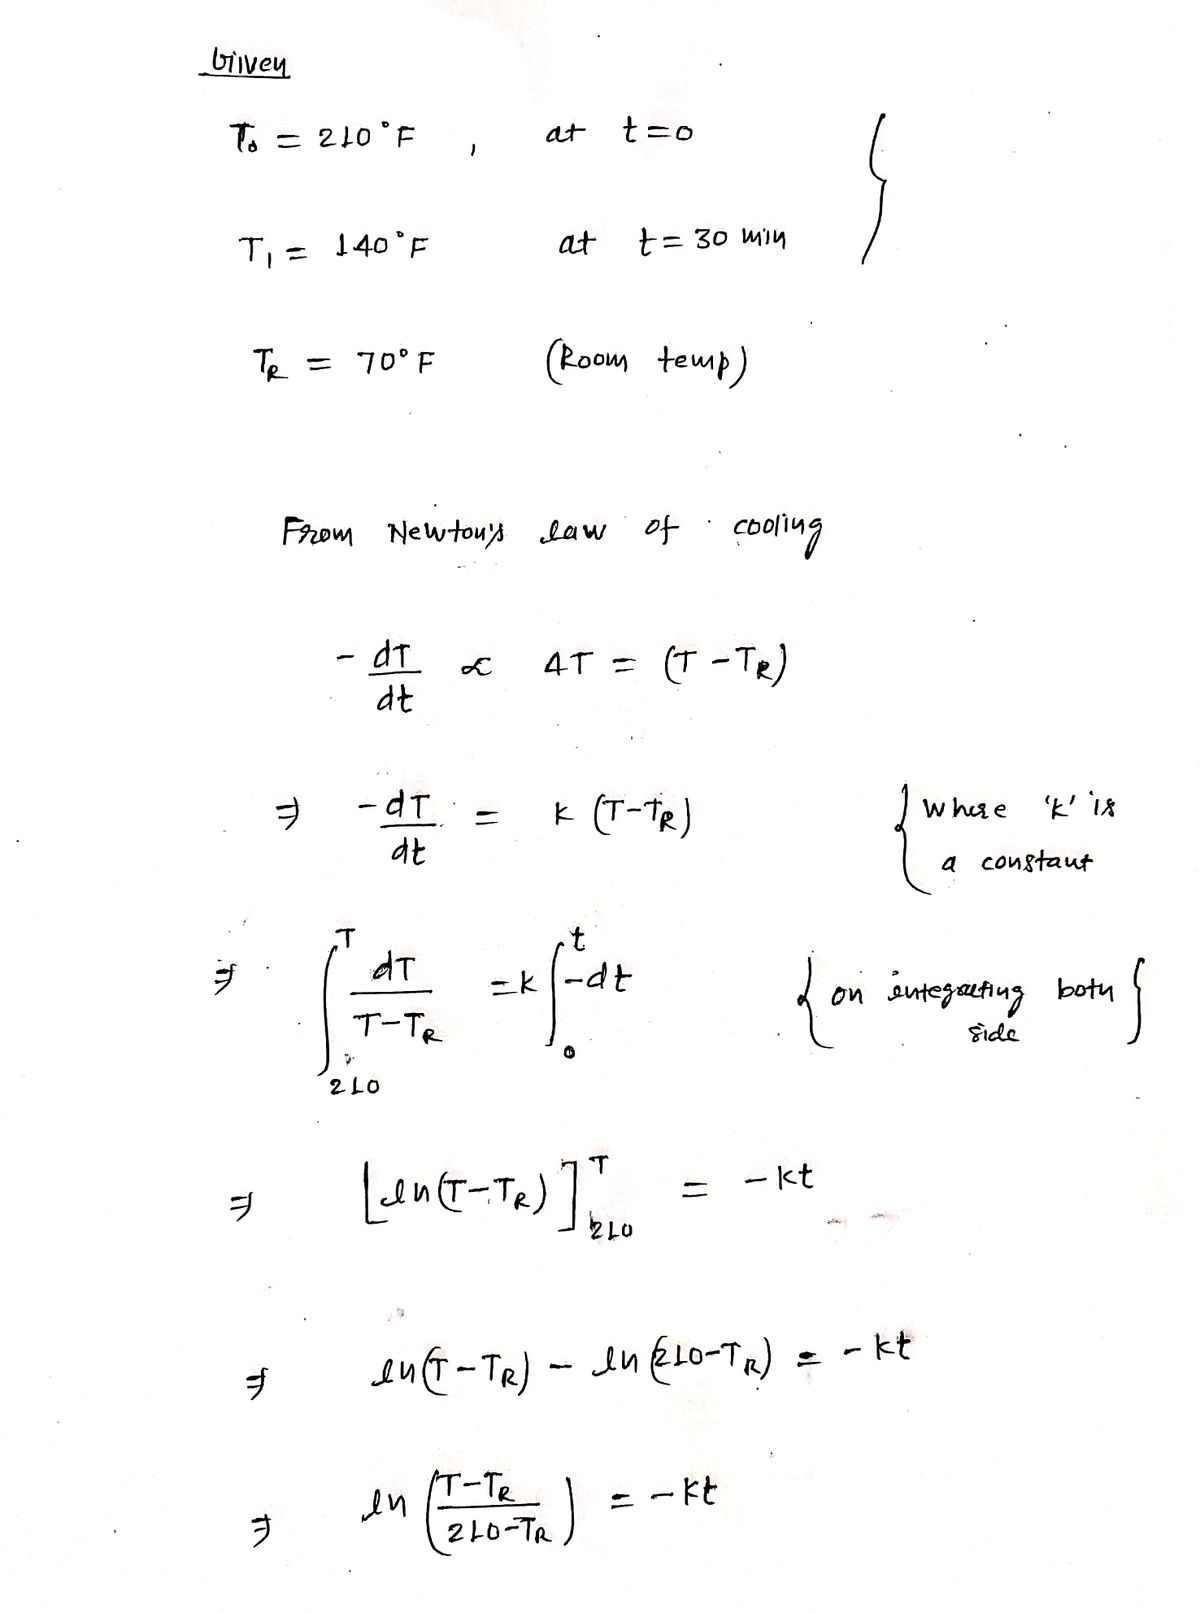 Given
T₀ = 210°F , at t=0
T₁ = 140°F at t= 30 min
T_R = 70°F (Room temp)
From Newton's law of cooling
- dT/dt ∝ ΔT = (T - T_R)
⇒ -dT/dt = K (T-T_R) { where 'K' is
a constant
⇒ ∫_{210}^{T} dT/(T-T_R) = K ∫_{0}^{t} -dt { on integrating both }
side
⇒ [ln(T-T_R)]_{210}^{T} = -Kt
⇒ ln(T-T_R) - ln(210-T_R) = -Kt
⇒ ln((T-T_R)/(210-T_R)) = -Kt